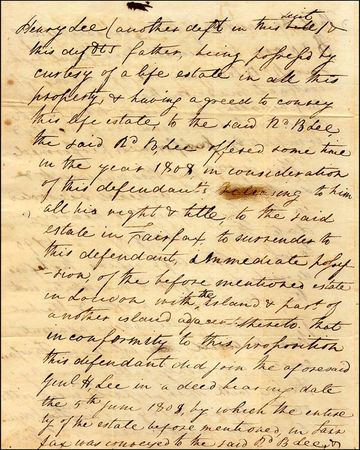 Henry Lee (another deft in this suit bill) &
this defdts father, being possessed by
curtesy of a life estate in all this
property, & having agreed to convey
this life estate, to the said Rd B Lee
the said Rd B Lee offered some time
in the year 1808 in consideration
of this defendants releasing to him
all his right & title, to the said
estate in Fairfax, to surrender to
this defendant, immediate posses-
-sion, of the before mentioned estate
in Loudon with the island & part of
another island adjacent thereto. that
in conformity to this proposition
this defendant did join the aforesaid
Genl H Lee in a deed bearing date
the 5th June 1808, by which the entire
ty of the estate before mentioned, in Fair
fax was conveyed to the said Rd B Lee &